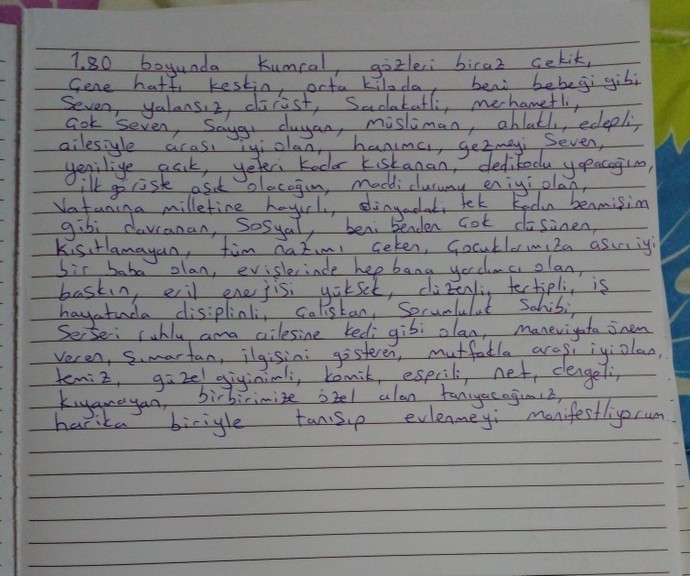 1.80 boyunda kumral, gözleri biraz çekik,
Çene hattı keskin, orta kiloda, beni bebeği gibi
Seven, yalansız, dürüst, Sadakatli, merhametli,
Çok Seven, Saygı duyan, müslüman, ahlaklı, edepli,
ailesiyle arası iyi olan, hanımcı, gezmeyi Seven,
yeniliğe açık, yeteri kadar kıskanan, dedikodu yapacağım,
ilk görüşte aşık olacağım, maddi durumu en iyi olan,
Vatanına milletine hayırlı, dünyadaki tek kadın benmişim
gibi davranan, Sosyal, beni benden çok düşünen,
kısıtlamayan, tüm nazımı çeken, Çocuklarımıza aşırı iyi
bir baba olan, evişlerinde hep bana yardımcı olan,
baskın, eril enerjisi yüksek, düzenli, tertipli, iş
hayatında disiplinli, çalışkan, Sorumluluk Sahibi,
Serseri ruhlu ama ailesine kedi gibi olan, maneviyata önem
veren, Şımartan, ilgisini gösteren, mutfakla arası iyi olan,
temiz, güzel giyinimli, komik, esprili, net, dengeli,
kıyamayan, birbirimize özel alan tanıyacağımız,
harika biriyle tanışıp evlenmeyi manifestliyorum.